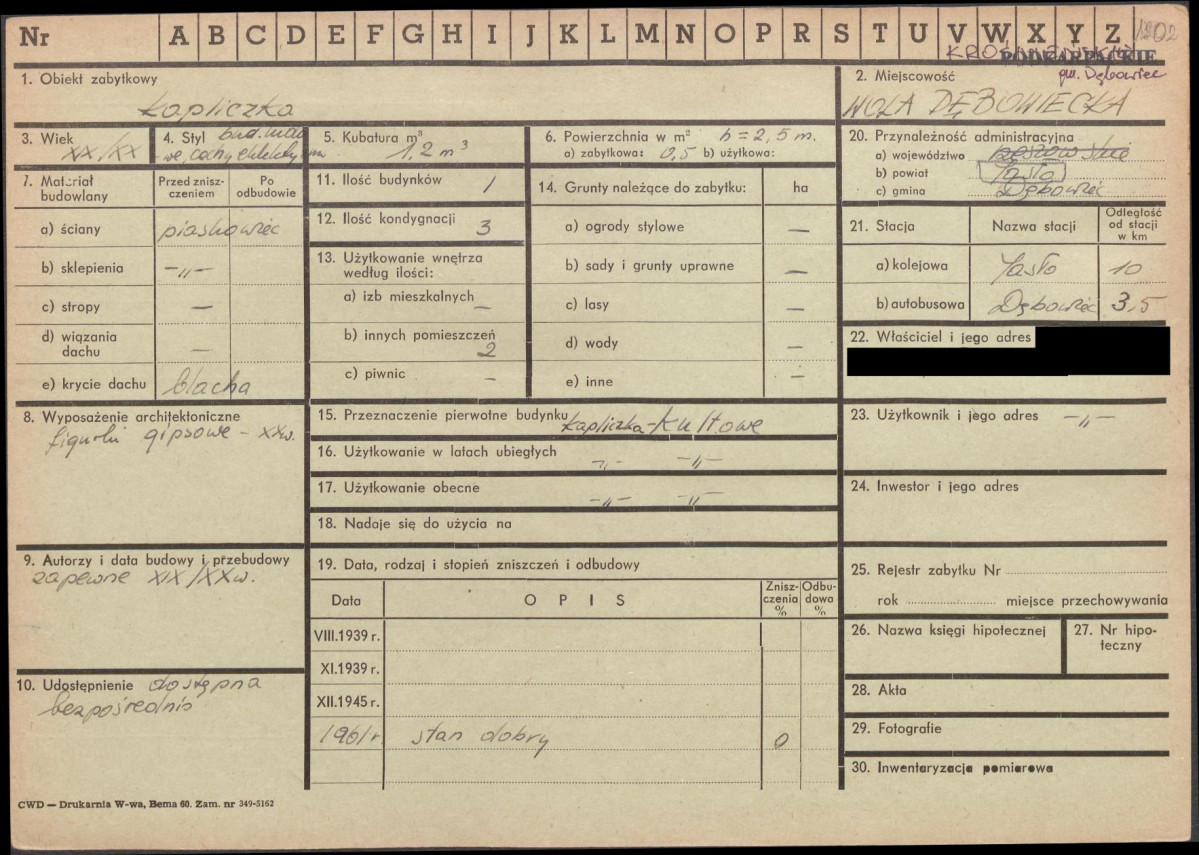 Nr A B C D E F G H I J K L M N O P R S T U V W X Y Z
PODKARPACKIE
gm. Dębowiec
1. Obiekt zabytkowy
kapliczka
2. Miejscowość
WOLA DĘBOWIECKA
3. Wiek
XX/XX
4. Styl bud.
5. Kubatura m³
1,2 m³
6. Powierzchnia w m² h = 2,5 m.
a) zabytkowa: 0,5 b) użytkowa:
20. Przynależność administracyjna
a) województwo rzeszowskie
b) powiat Jasło
c) gmina Dębowiec
7. Materiał budowlany
Przed zniszczeniem
Po odbudowie
a) ściany piaskowiec
b) sklepienia -„-
c) stropy —
d) wiązania dachu —
e) krycie dachu blacha
11. Ilość budynków 1
12. Ilość kondygnacji 3
13. Użytkowanie wnętrza według ilości:
a) izb mieszkalnych —
b) innych pomieszczeń 2
c) piwnic —
14. Grunty należące do zabytku: ha
a) ogrody stylowe —
b) sady i grunty uprawne —
c) lasy —
d) wody —
e) inne —
21. Stacja Nazwa stacji Odległość od stacji w km
a) kolejowa Jasło 10
b) autobusowa Dębowiec 3,5
22. Właściciel i jego adres
8. Wyposażenie architektoniczne
figurki gipsowe - XXw.
15. Przeznaczenie pierwotne budynku kapliczka-kultowe
16. Użytkowanie w latach ubiegłych -„- -„-
17. Użytkowanie obecne -„- -„-
18. Nadaje się do użycia na
23. Użytkownik i jego adres -„-
24. Inwestor i jego adres
9. Autorzy i data budowy i przebudowy
zapewne XIX/XXw.
19. Data, rodzaj i stopień zniszczeń i odbudowy
Data OPIS Zniszczenia % Odbudowa %
VIII.1939 r.
XI.1939 r.
XII.1945 r.
1961 r. stan dobry 0
25. Rejestr zabytku Nr
rok miejsce przechowywania
26. Nazwa księgi hipotecznej
27. Nr hipoteczny
10. Udostępnienie dostępna
bezpośrednio
28. Akta
29. Fotografie
30. Inwentaryzacja pomiarowa
CWD — Drukarnia W-wa, Bema 60. Zam. nr 349-5162